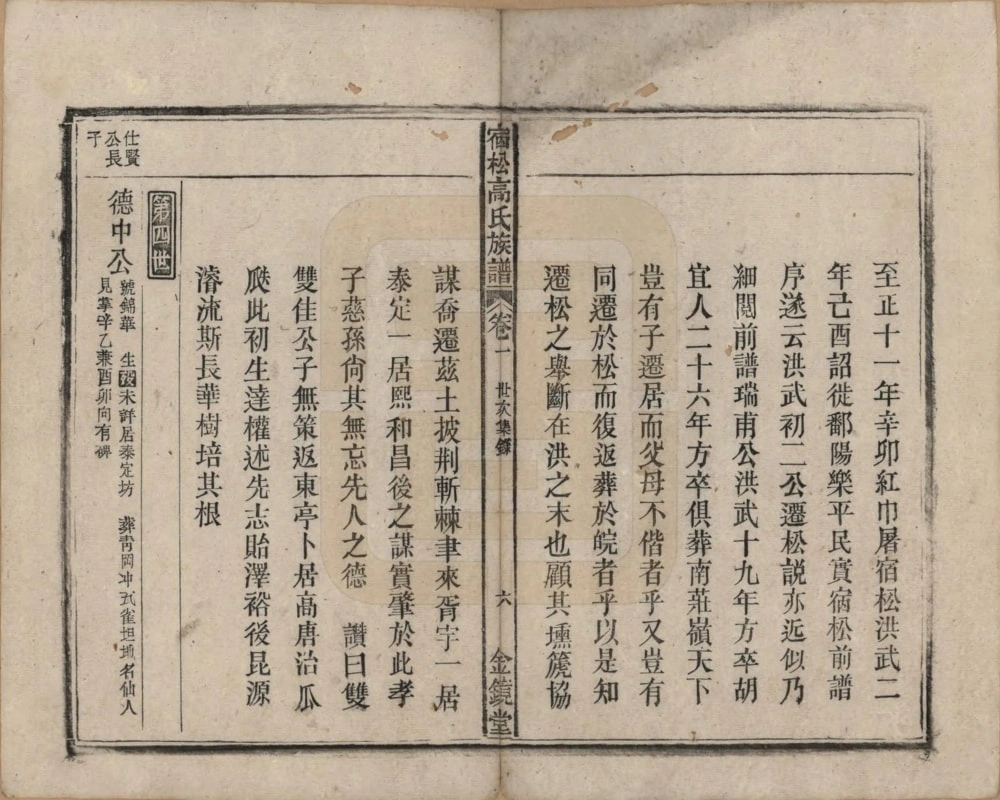 至正十一年辛卯紅巾屠宿松洪武二
年己酉詔徙鄱陽樂平民實宿松前譜
序遂云洪武初二公遷松説亦近似乃
細閲前譜瑞甫公洪武十九年方卒胡
宜人二十六年方卒俱葬南莊嶺天下
豈有子遷居而父母不偕者乎又豈有
同遷於松而復返葬於皖者乎以是知
遷松之舉斷在洪之末也顧其壎篪協
宿松高氏族譜 卷一 世次集錄 六 金鏡堂
謀喬遷茲土披荆斬棘聿來胥宇一居
泰定一居熙和昌後之謀實肇於此孝
子慈孫尙其無忘先人之德 讚曰雙
雙佳公子無策返東亭卜居高唐治瓜
瓞此初生達權述先志貽澤裕後昆源
濬流斯長華樹培其根
第四世
仕賢
公長
子
德中公
號錦華 生歿未詳居泰定坊 葬靑岡冲瓦雀坦地名仙人
見掌辛乙兼酉卯向有碑